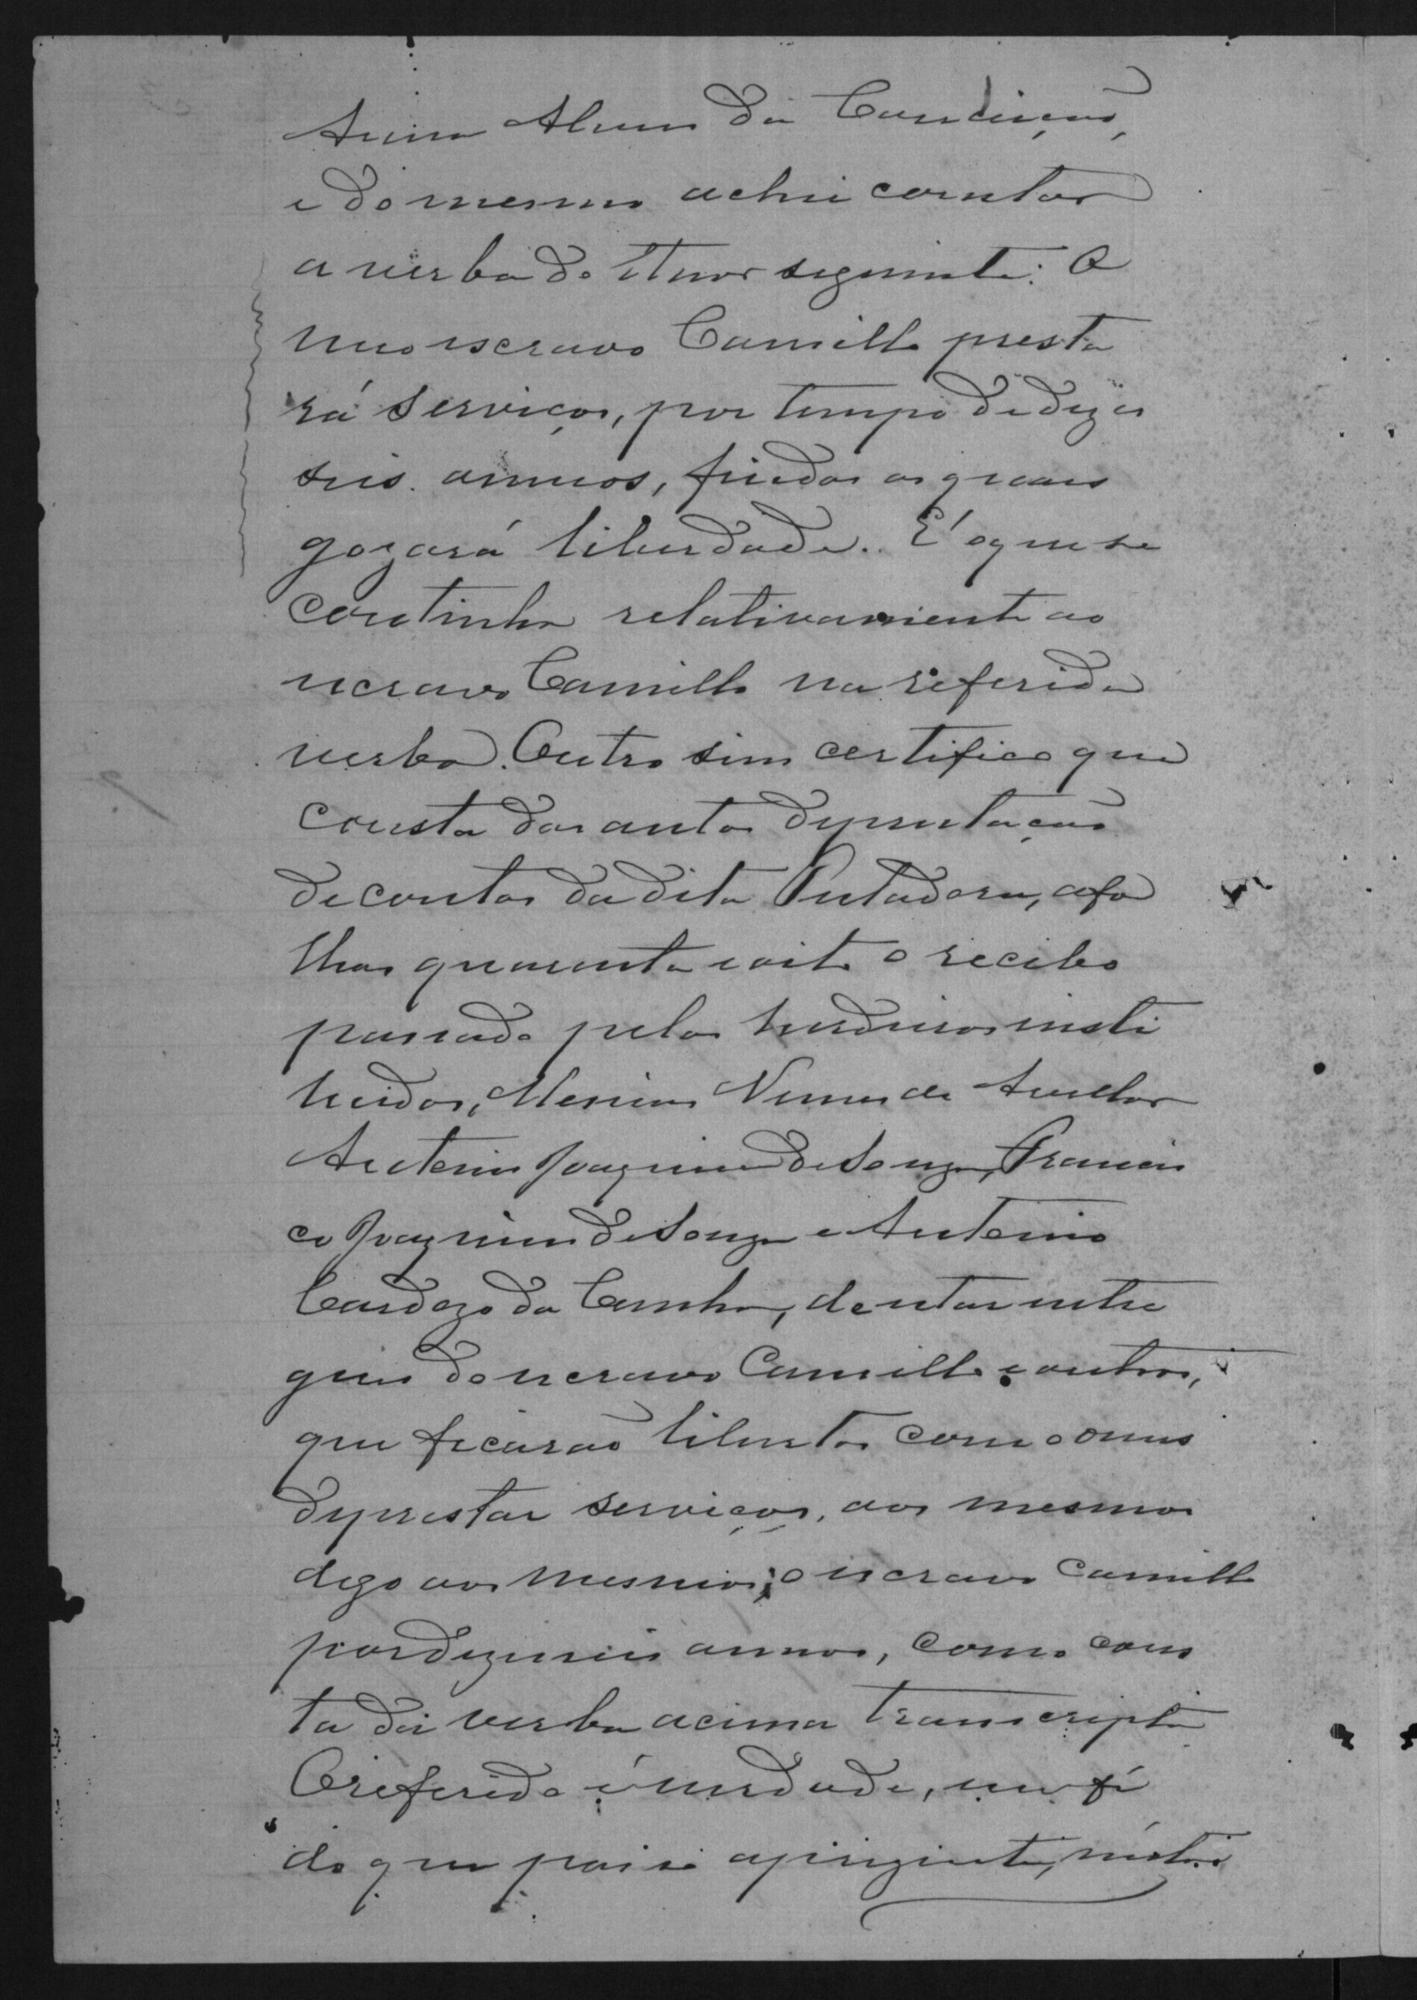 Anna Alves da Conceição,
e do mesmo achei constar
a verba do theor seguinte: O
meo escravo Camillo presta
rá serviços, por tempo de dezes
seis annos, findos os quaes
gozará liberdade. É o que se
continha relativamente ao
escravo Camillo na referida
verba. Outro sim certifico que
consta dos autos de prestação
de contas da dita Testadora, a fo
lhas quarenta e oito o recibo
passado pelos herdeiros insti
tuidos, Messias Nunes de
Antonio Joaquim de Souza, Francis
co Joaquim de Souza e Antonio
Cardozo da Cunha, de estar entre
gues do escravo Camillo e outros,
que ficarão libertos com o onus
de prestar serviços, aos mesmos
digo aos mesmos; o escravo Camillo
por dezeseis annos, como cons
ta da verba acima transcripta
O referido é verdade, em fé
do que passei a presente, nesta